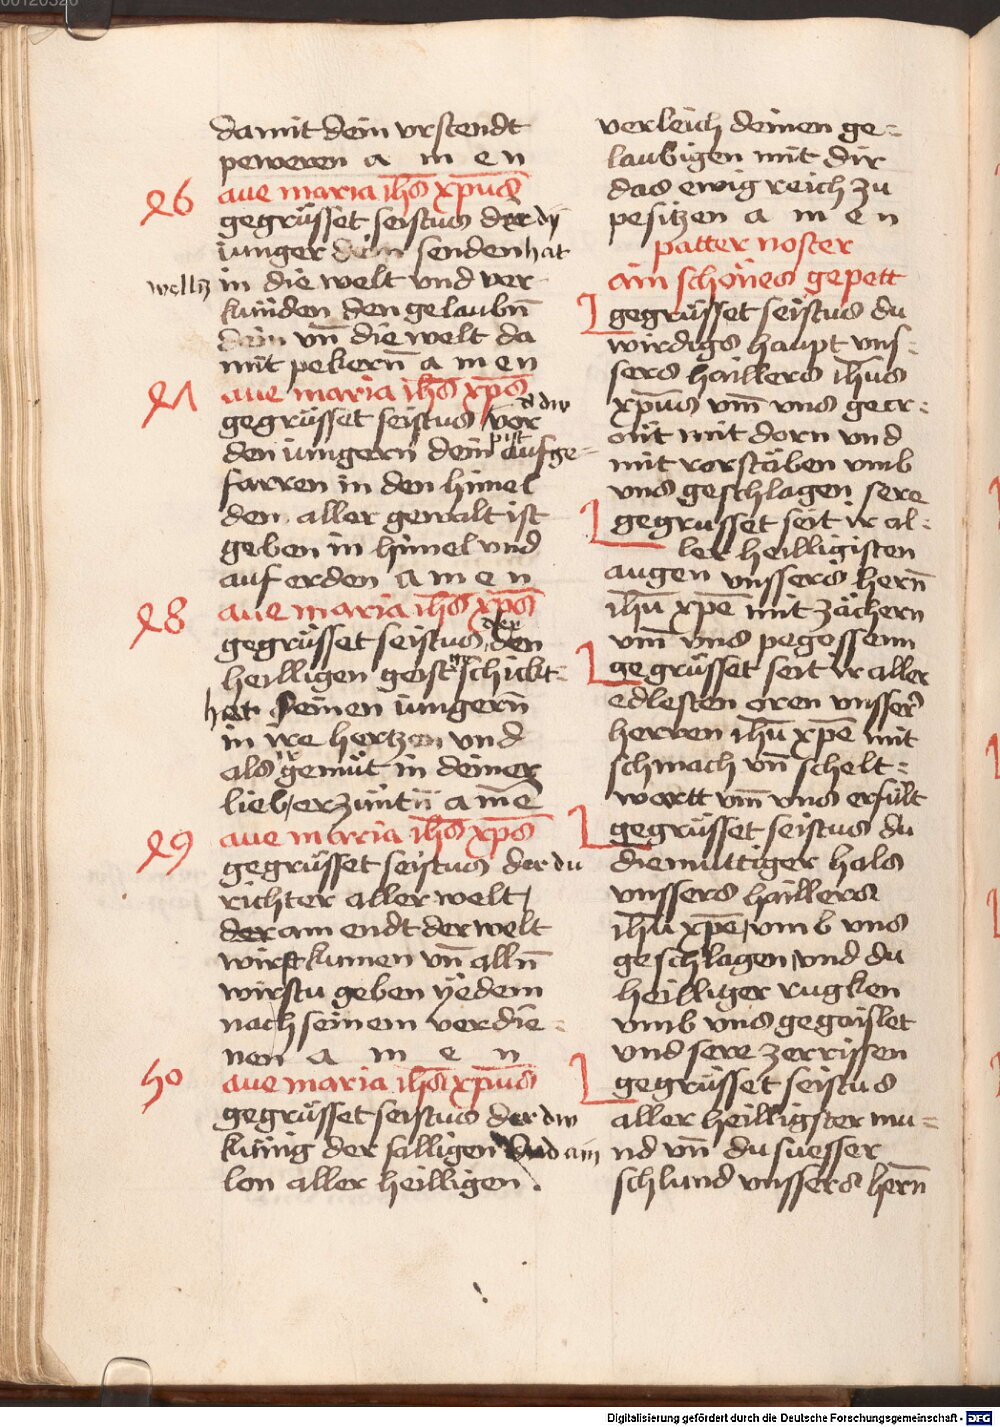 00120320
damit dein vrstendt
peweren a m e n
46 aue maria ih̄s xp̄us
gegrüsset seistus der dÿ
iunger senden hat
wellñ in die welt vnd ver
kunden den gelaubn̄
dein vn̄ die welt da
mit pekern̄ a m e n
47 aue maria ih̄s xp̄s
gegrüsset seistus vor d̄ dw
den iungern dein pist aufge=
farren in den himel
den aller gewalt ist
geben in himel vnd
auf erden a m e n
48 aue maria ih̄s xp̄s
gegrüsset seistus der den
heilligen geist schickt=
het seinen iungern̄
in ire hertzen vnd
als ir gemüt in deiner
lieb / erzüntn̄ a m ē
49 aue maria ih̄s xp̄s
gegrüsset seistus der du
richter aller welt /
der am endt der welt
wirst kumen vn̄ alln̄
wirstu geben ÿedem
nach seinem verdie=
nen a m e n
50 aue maria ih̄s xp̄us
gegrüsset seistus der dw
küng der salligen vnd ain
lon aller heilligen .
verleich deinen ge=
laubigen mit dir
das ewig reich zu
pesitzen a m e n
patter noster
ain schönes gepett
gegrüsset seistus du
wirdigs haupt vns=
sers haillers ih̄us
xp̄us vm̄ vns gecr=
ont mit dorn vnd
mit rorstäben vmb
vns geschlagen sere
gegrusset seit ir al=
ler heilligisten
augen vnssers hern̄
ih̄u xp̄e mit zächern
vm̄ vns pegossenn
gegrüsset seit ir aller
edlesten oren vnsser̄s
herren ih̄u xp̄e mit
schmach vn̄ schelt=
wortt vm̄ vns erfült
gegrüsset seistus du
diemuttiger hals
vnssers haillers
ih̄u xp̄e / vmb vns
geschlagen / vnd du
heilliger rugken
vmb vns gegaislet
vnd sere zerrissen
gegrüsset seistus
aller heilligster mu=
nd vn̄ du suesser
schlund vnssers hern̄
Digitalisierung gefördert durch die Deutsche Forschungsgemeinschaft - DFG